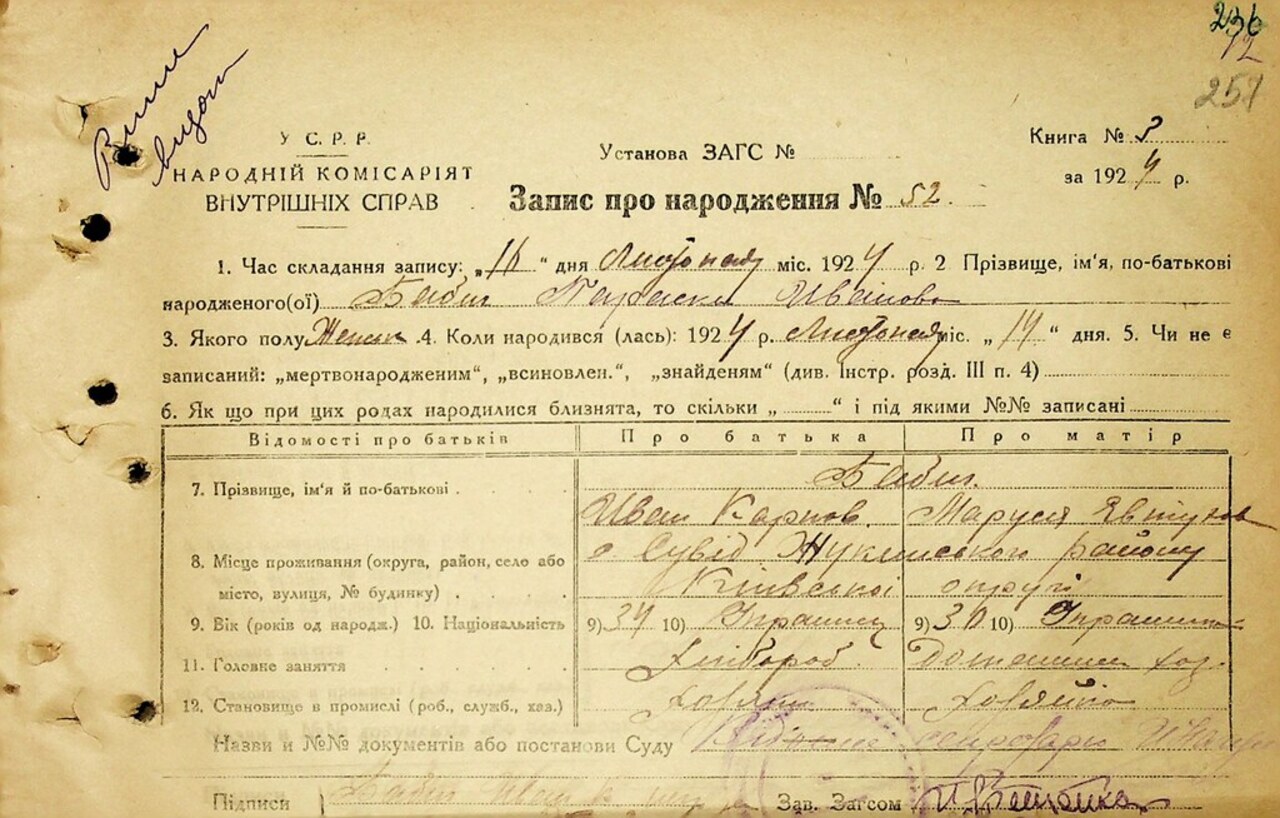 236
12
257
У С. Р. Р.
НАРОДНІЙ КОМІСАРІЯТ
ВНУТРІШНІХ СПРАВ
Установа ЗАГС №
Книга № 3
за 1924 р.
Запис про народження № 52.
1. Час складання запису: „16“ дня Листопаду міс. 1924 р. 2 Прізвище, ім'я, по-батькові
народженого(ої) Параски Иванова
3. Якого полу Женск. 4. Коли народився (лась): 1924 р. Листопаду міс. „14“ дня. 5. Чи не є
записаний: „мертвонародженим“, „всиновлен.“, „знайденям“ (див. Інстр. розд. III п. 4)
6. Як що при цих родах народилися близнята, то скільки „ “ і під якими №№ записані
Відомості про батьків Про батька Про матір
7. Прізвище, ім'я й по-батькові
Иван Карпов. Маруся Явтухов
8. Місце проживання (округа, район, село або
місто, вулиця, № будинку)
с. Сувід Жукинського району
Київської округі
9. Вік (років од народж.) 10. Національність 9) 34 10) Украинец 9) 30 10) Украинка
11. Головне заняття Хлібороб. Домашнее хоз.
12. Становище в промислі (роб., служб., хаз.) Хозяин Хозяйка
Назви и №№ документів або постанови Суду
Підписи Иван Зав. Загсом